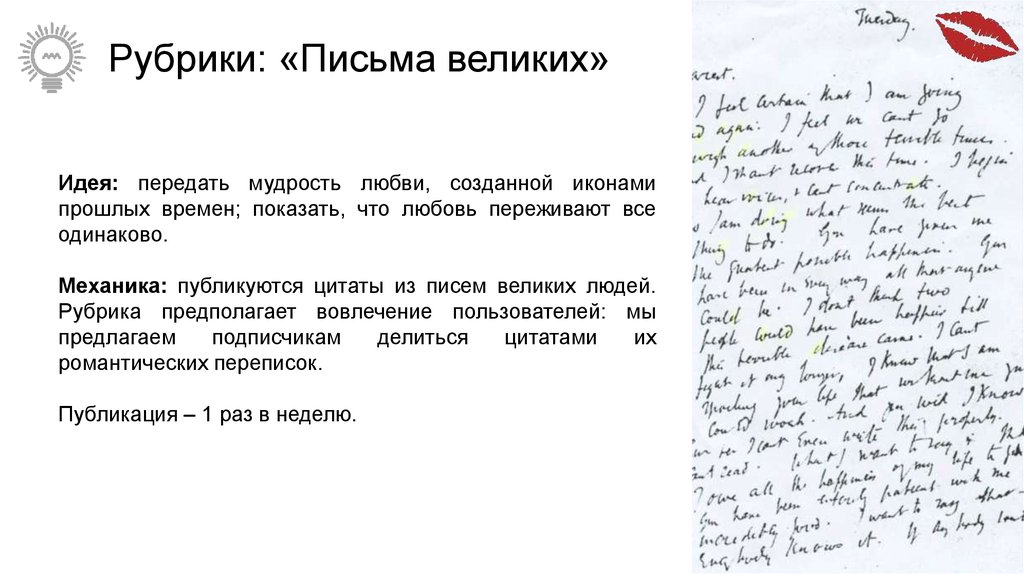 Рубрики: «Письма великих»
Идея: передать мудрость любви, созданной иконами
прошлых времен; показать, что любовь переживают все
одинаково.
Механика: публикуются цитаты из писем великих людей.
Рубрика предполагает вовлечение пользователей: мы
предлагаем подписчикам делиться цитатами их
романтических переписок.
Публикация – 1 раз в неделю.
Tuesday.
I feel certain that I am going
again. I feel we cant go
another of those terrible times.
I shant recover this time. I begin
hear voices, & cant concentrate.
I am doing what seems the best
thing to do. You have given me
the greatest possible happiness. You
have been in every way all that anyone
could be. I dont think two
people could have been happier till
this terrible disease came. I cant
fight it any longer, I know that I am
spoiling your life, that without me you
could work. And you will I know.
I cant even write this properly.
read. What I want to say is
I owe all the happiness of my life to
You have been entirely patient with me
incredibly good. I want to say that
everybody knows it. If anybody